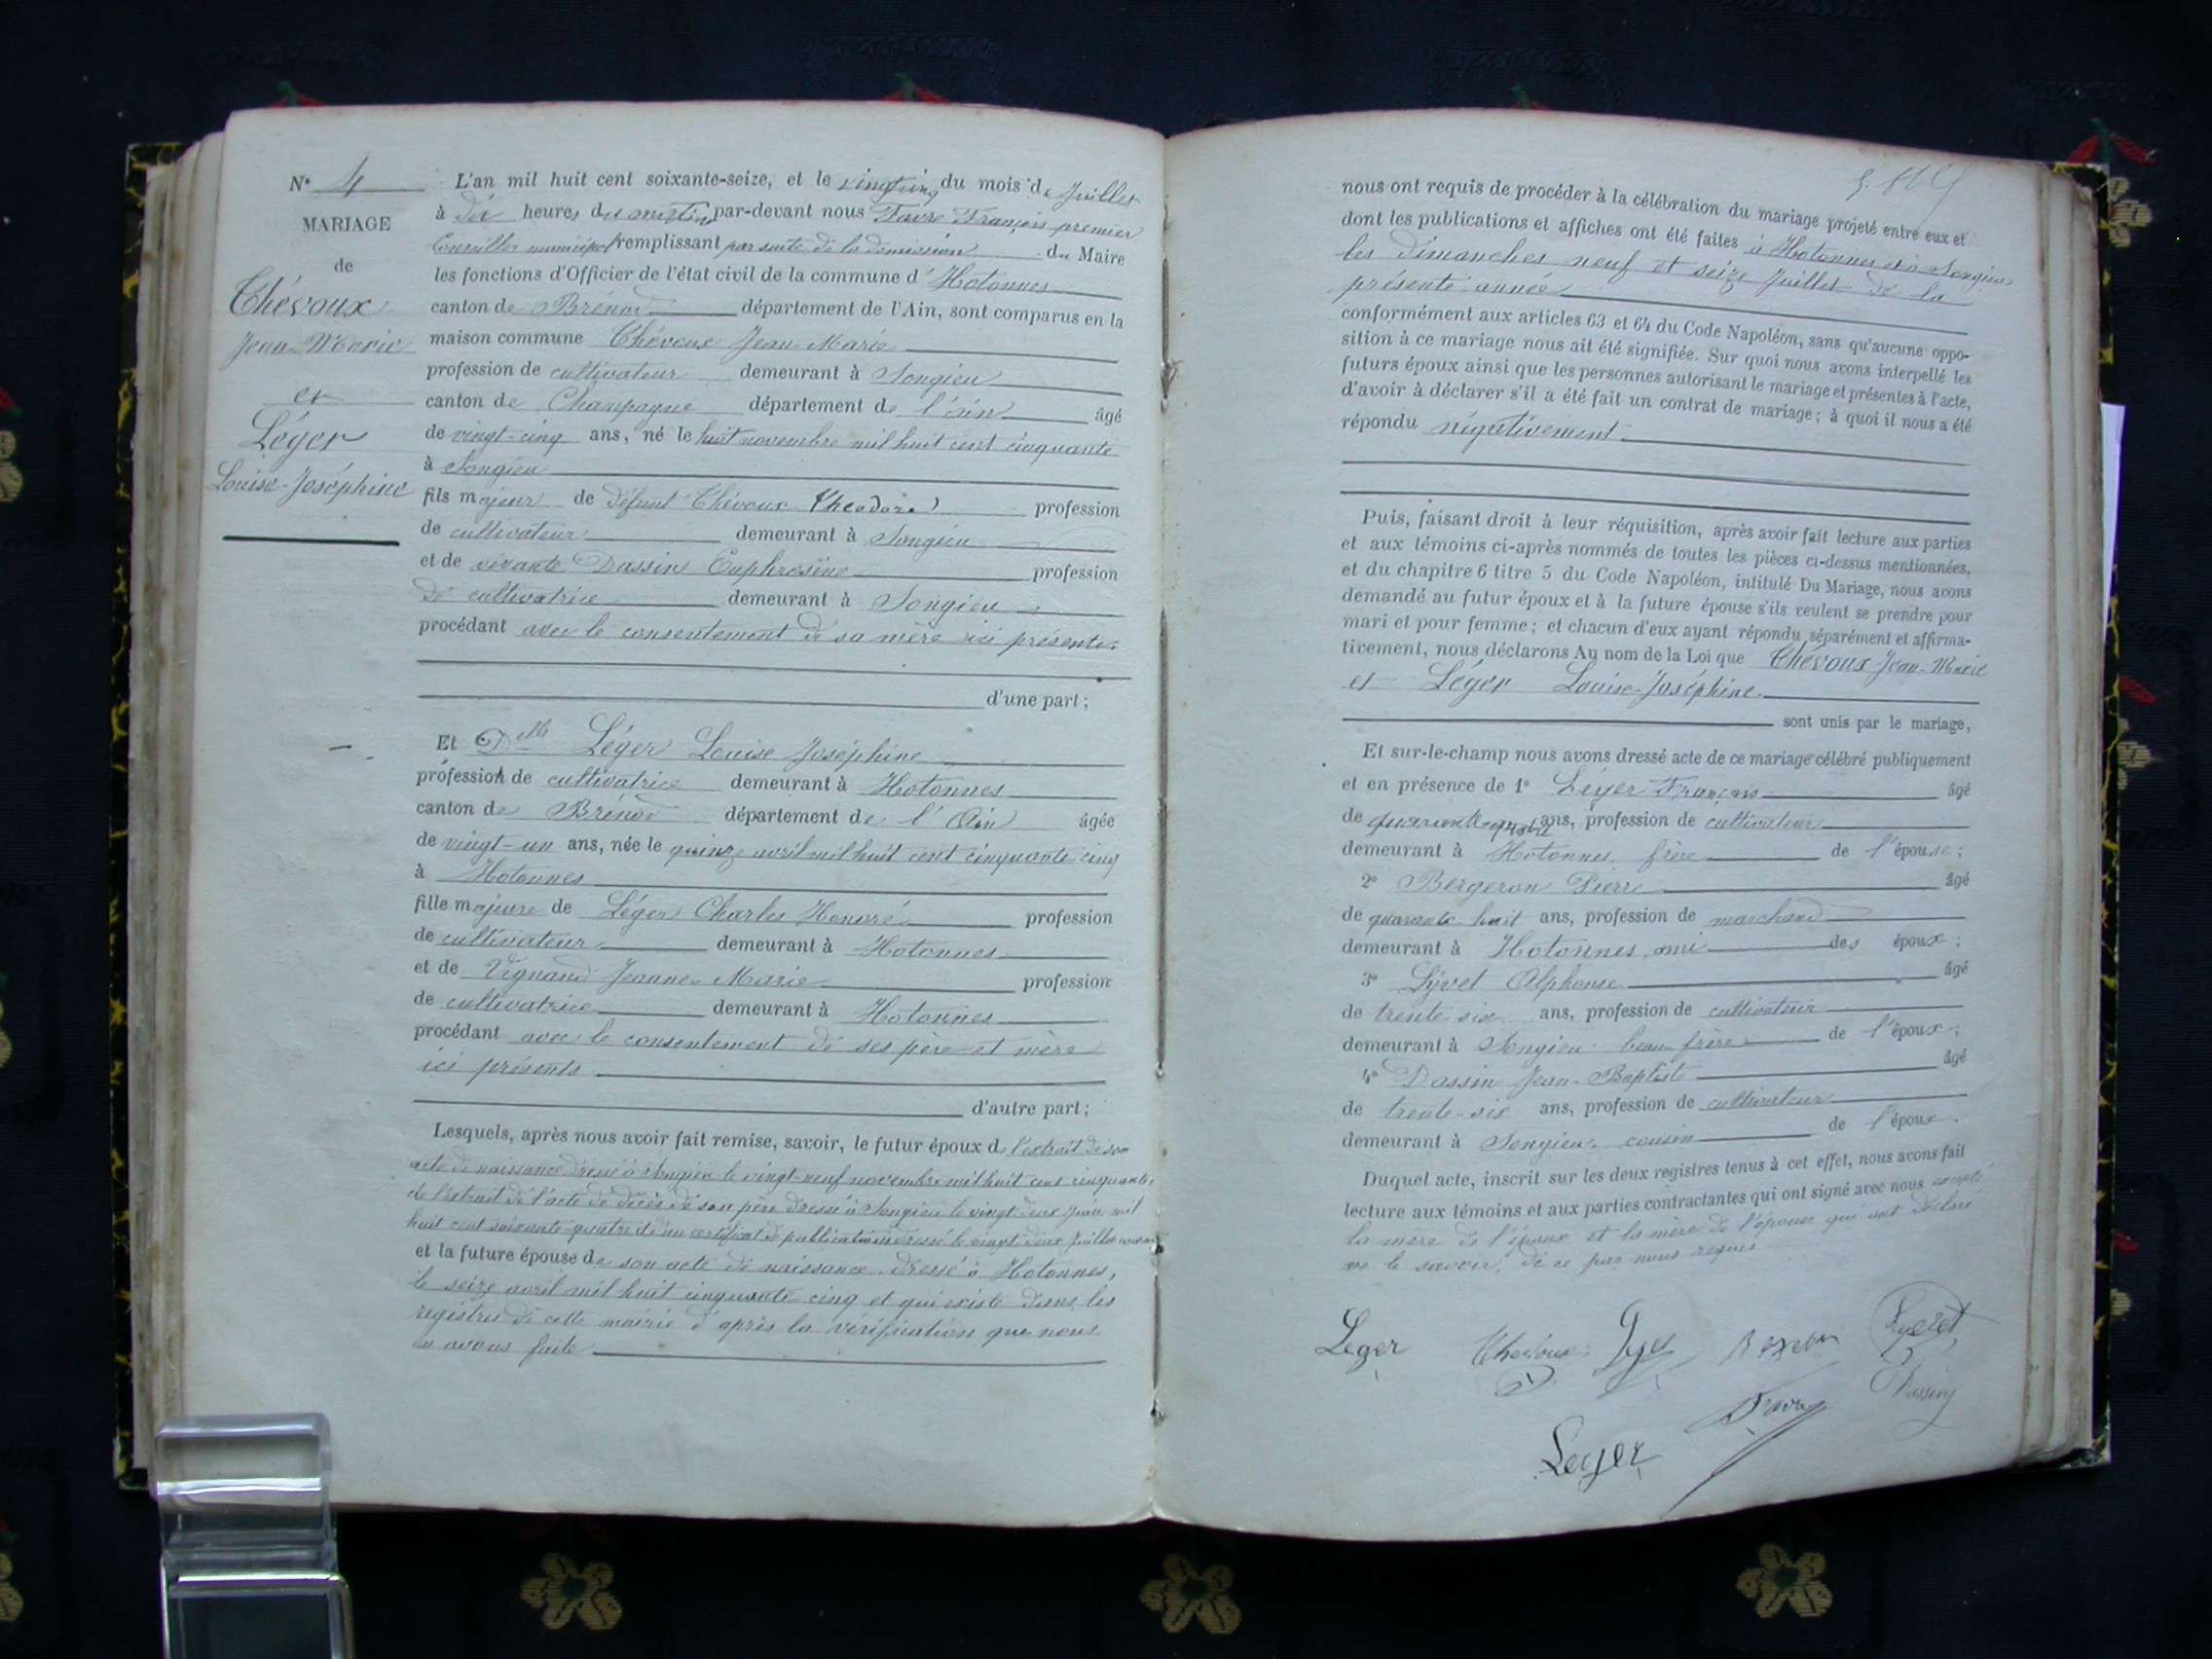 N° 4
MARIAGE
de
Chévoux
Jean-Marie
et
Léger
Louise-Joséphine
L'an mil huit cent soixante-seize, et le vingt cinq du mois de Juillet
à dix heures du matin par-devant nous Favre François premier
Conseiller municipal remplissant par suite de la démission du Maire
les fonctions d'Officier de l'état civil de la commune d'Hotonnes
canton de Brénod département de l'Ain, sont comparus en la
maison commune Chévoux Jean-Marie
profession de cultivateur demeurant à Songieu
canton de Champagne département de l'ain âgé
de vingt-cinq ans, né le huit novembre mil huit cent cinquante
à Songieu
fils majeur de défunt Chévoux Theodore profession
de cultivateur demeurant à Songieu
et de vivante Dassin Euphrosine profession
de cultivatrice demeurant à Songieu
procédant avec le consentement de sa mère ici présente
d'une part;
Et Delle Léger Louise Joséphine
profession de cultivatrice demeurant à Hotonnes
canton de Brénod département de l'Ain âgée
de vingt-un ans, née le quinze avril mil huit cent cinquante cinq
à Hotonnes
fille majeure de Léger Charles Honoré profession
de cultivateur demeurant à Hotonnes
et de Vignand Jeanne Marie profession
de cultivatrice demeurant à Hotonnes
procédant avec le consentement de ses père et mère
ici présents
d'autre part;
Lesquels, après nous avoir fait remise, savoir, le futur époux de l'extrait de son
acte de naissance dressé à Songieu le vingt-neuf novembre mil huit cent cinquante,
de l'extrait de l'acte de décès de son père dressé à Songieu le vingt deux Juin mil
huit cent soixante quatre d'un certificat de publication dressé le vingt deux Juillet courant
et la future épouse de son acte de naissance dressé à Hotonnes,
le seize avril mil huit cinquante cinq et qui existe dans les
registres de cette mairie d'après la vérification que nous
en avons faite
nous ont requis de procéder à la célébration du mariage projeté entre eux et
dont les publications et affiches ont été faites à Hotonnes et à Songieu
les dimanches neuf et seize Juillet de la
présente année
conformément aux articles 63 et 64 du Code Napoléon, sans qu'aucune oppo-
sition à ce mariage nous ait été signifiée. Sur quoi nous avons interpellé les
futurs époux ainsi que les personnes autorisant le mariage et présentes à l'acte,
d'avoir à déclarer s'il a été fait un contrat de mariage; à quoi il nous a été
répondu négativement
Puis, faisant droit à leur réquisition, après avoir fait lecture aux parties
et aux témoins ci-après nommés de toutes les pièces ci-dessus mentionnées,
et du chapitre 6 titre 5 du Code Napoléon, intitulé Du Mariage, nous avons
demandé au futur époux et à la future épouse s'ils veulent se prendre pour
mari et pour femme; et chacun d'eux ayant répondu séparément et affirma-
tivement, nous déclarons Au nom de la Loi que Chévoux Jean-Marie
et Léger Louise-Joséphine
sont unis par le mariage,
Et sur-le-champ nous avons dressé acte de ce mariage célébré publiquement
et en présence de 1° Léger François âgé
de quarante-quatre ans, profession de cultivateur
demeurant à Hotonnes frère de l'épouse;
2° Bergeron Pierre âgé
de quarante huit ans, profession de marchand
demeurant à Hotonnes, ami des époux;
3° Lyvet Alphonse âgé
de trente six ans, profession de cultivateur
demeurant à Songieu beau frère de l'époux;
4° Dassin Jean-Baptiste âgé
de trente-six ans, profession de cultivateur
demeurant à Songieu cousin de l'époux.
Duquel acte, inscrit sur les deux registres tenus à cet effet, nous avons fait
lecture aux témoins et aux parties contractantes qui ont signé avec nous excepté
la mère de l'époux et la mère de l'épouse qui ont déclaré
ne le savoir, de ce par nous requis
Leger Chevoux
Favre Dassin
Leger